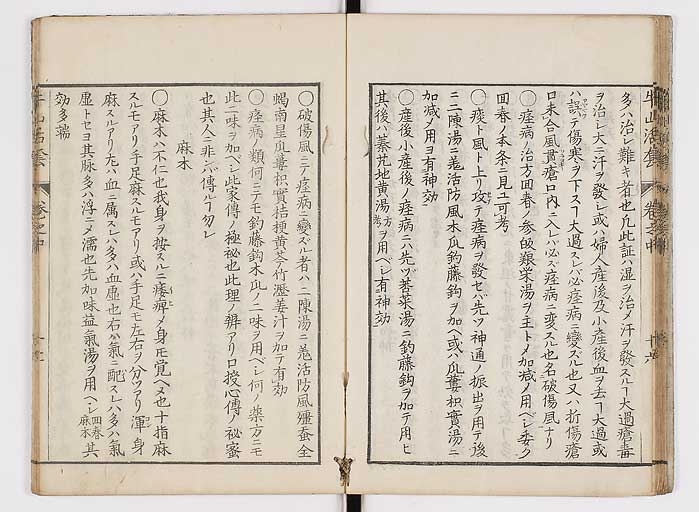 多ハ治シ難キ者也凡此証ハ湿ヲ治メ汗ヲ發スルヿ大過瘡毒
ヲ治シ大ニ汗ヲ發シ或ハ婦人産後及小産後血ヲ去ヿ大過或
ハ誤テ傷寒ヲ下スヿ大過スレバ必痓病ニ變ズル也又ハ折傷瘡
口未合風貫瘡口内ニ入レハ必ズ痓病ニ変スル也名破傷風ナリ
○痓病ノ治方回春ノ参皈養栄湯ヲ主トメ加減ノ用ベシ委ク
回春ノ本条ニ見エ可考
○痰ト風ト上リ攻テ痓病ヲ發セバ先ツ神通ノ振出ヲ用テ後
ニ二陳湯ニ羗活防風木瓜釣藤鈎ヲ加ベ或ハ瓜蔞枳實湯ニ
加減ノ用ヨ有神効
○産後小産後ノ痓病ニハ先ツ芎薬湯ニ釣藤鈎ヲ加テ用ヒ
其後ハ蓁芃地黄湯方可考ヲ用ベシ有神効
○破傷風ニテ痓病ニ變ズル者ハ二陳湯ニ羗活防風殭蚕全
蝎南星瓜蔞枳實桔梗黄芩竹瀝姜汁ヲ加テ有効
○痓病ノ類何ニテモ釣藤鈎木瓜ノ二味ヲ用ベシ何ノ薬方ニモ
此二味ヲ加ベシ此家傳ノ極祕也此理ノ辨アリ口授心傳ノ祕蜜
也其人ニ非ズバ傳ルヿ勿レ
麻木
○麻木ハ不仁也我身ヲ按スルニ痿痺メ身モ覚ヘズ也十指麻
スルモアリ手足麻スルモアリ或ハ手足モ左右ヲ分ツアリ渾身
麻スルアリ左ハ血ニ属スレハ多ハ血虚也右ハ氣ニ配スレハ多ハ氣
虚トセヨ其脉多ハ浮ニメ濡也先加味益氣湯ヲ用ヘシ回春麻木其
効多端
牛山活套
巻之中
十六